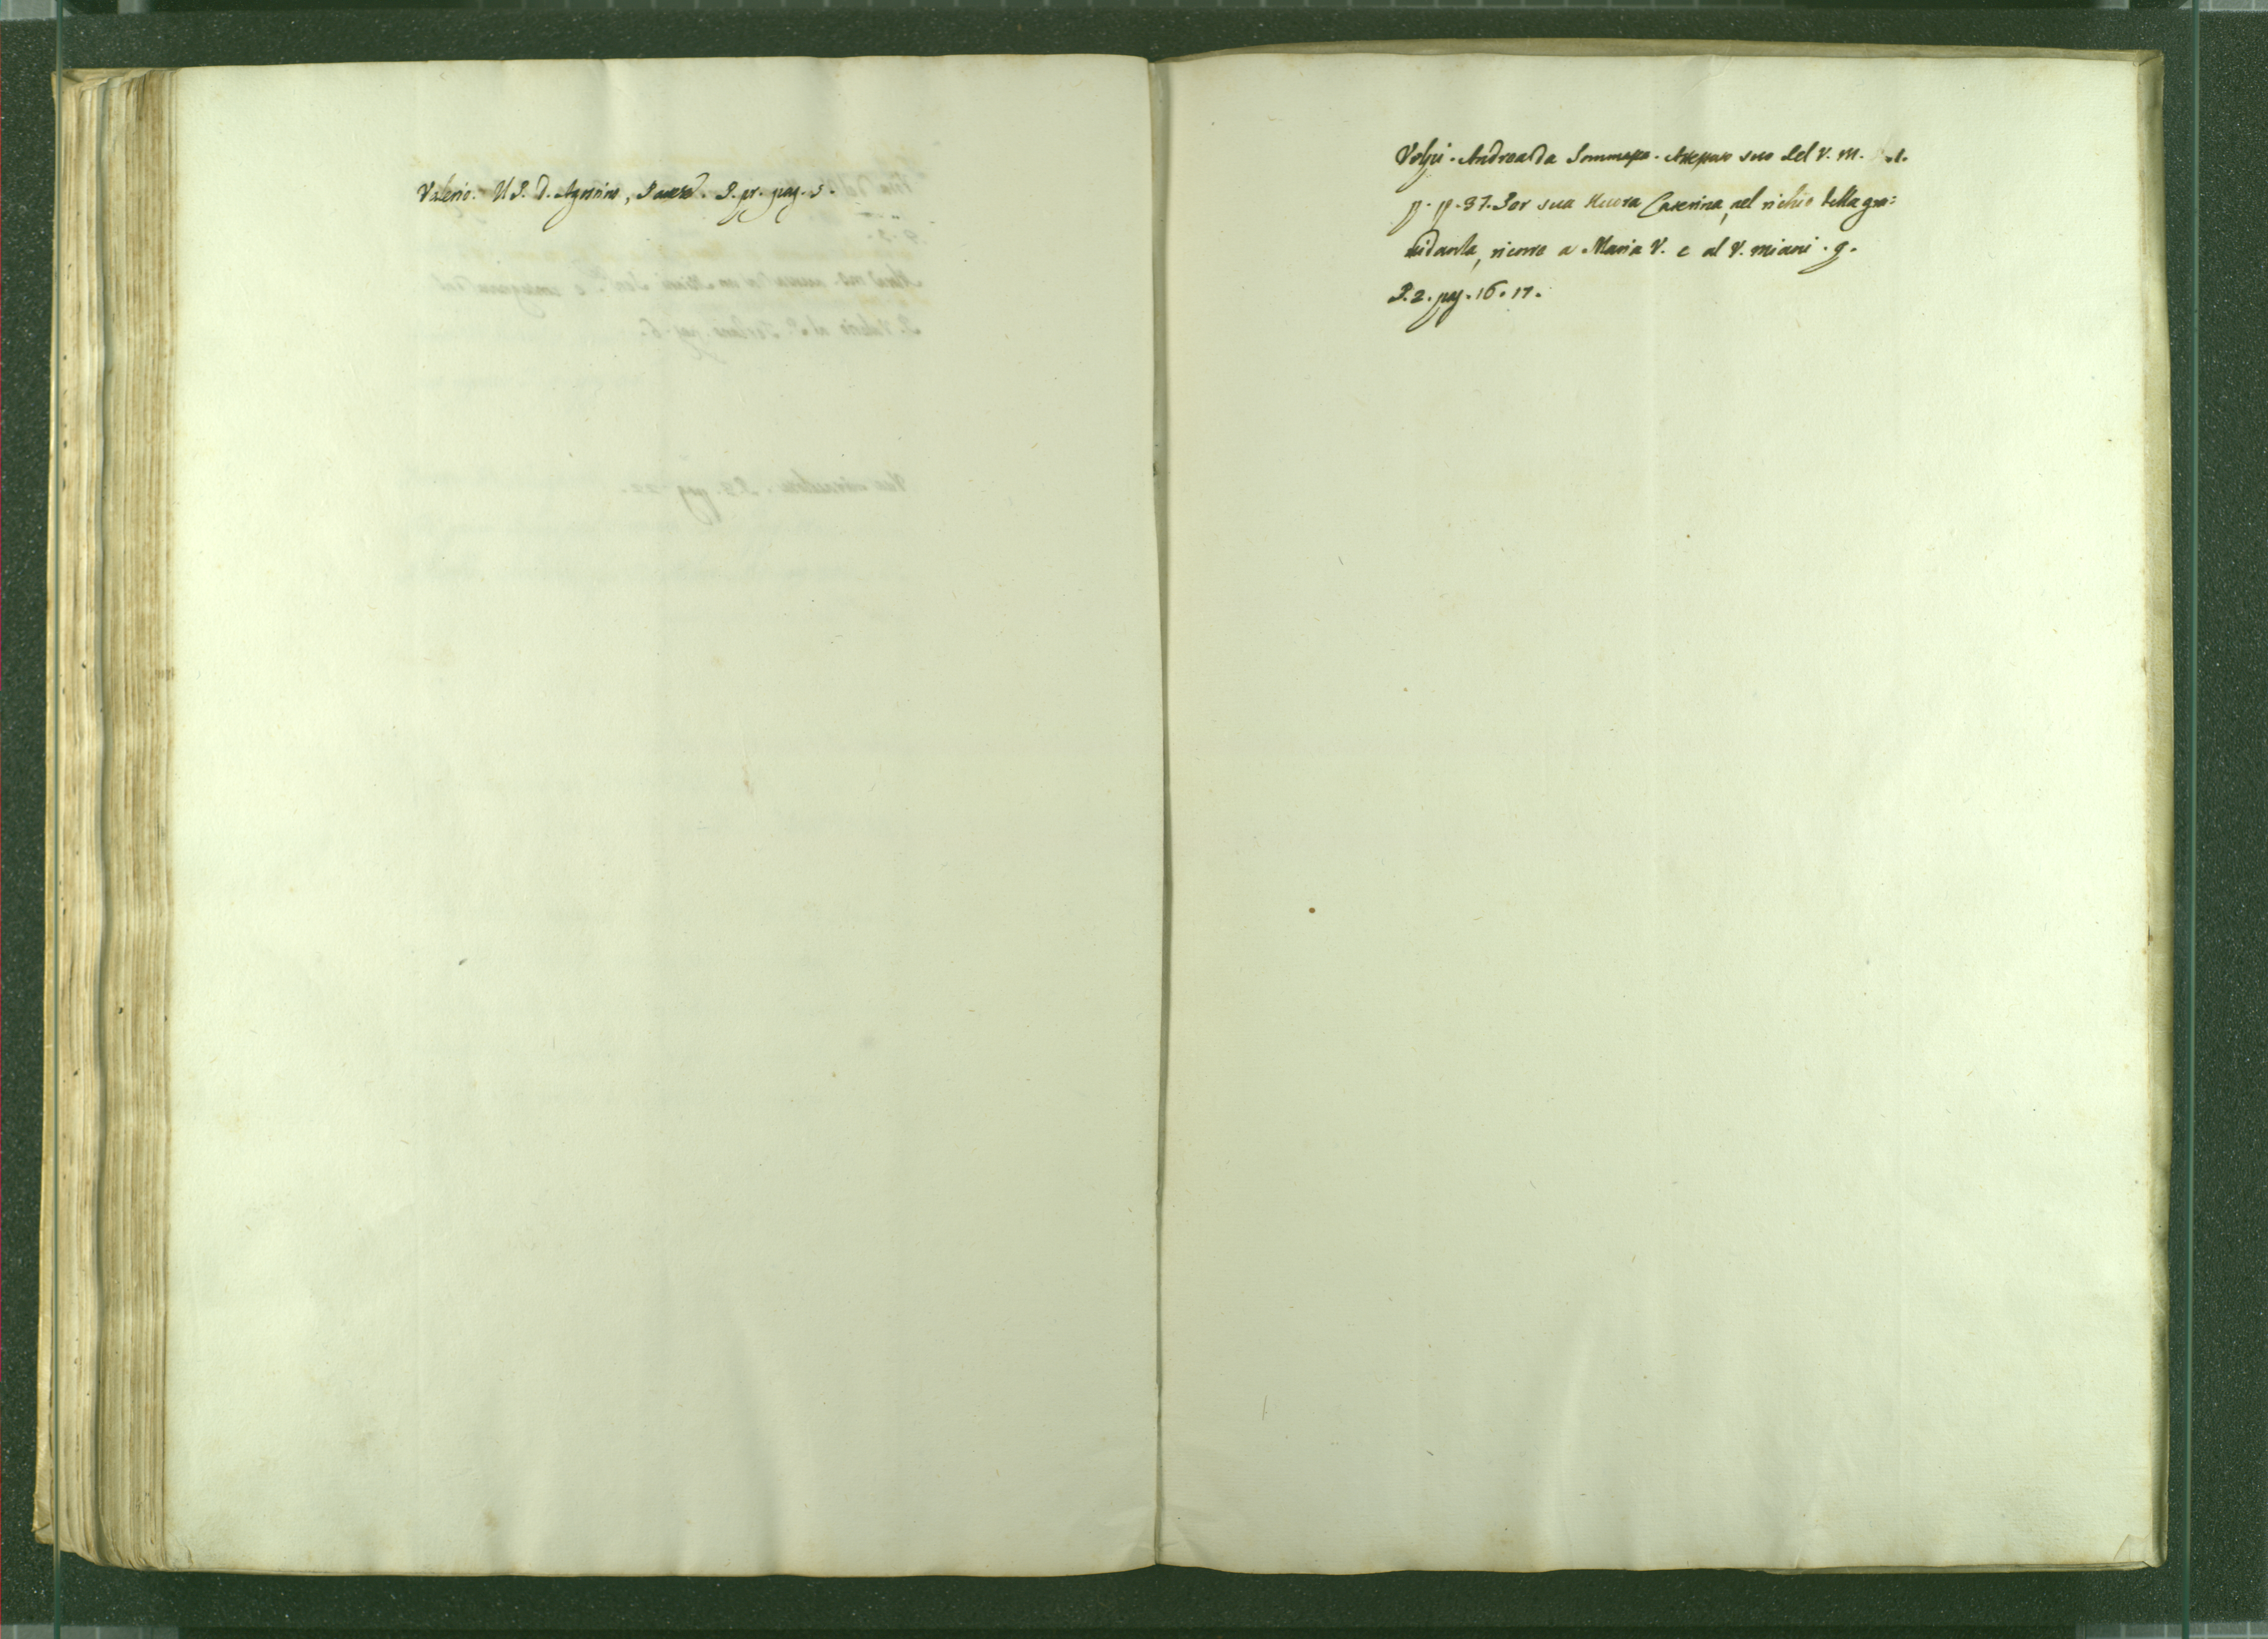 Valerio. Il P. D. Agostino, P. pr. pag. 5.
Volpi. Andrea da Sommasca. suo del V. M.
p. p. 37. Per sua Nuora Caterina, nel richio della gra:
uidanza, ricorre a Maria V. e al V. Miani. g.
P. 2. pag. 16. 17.